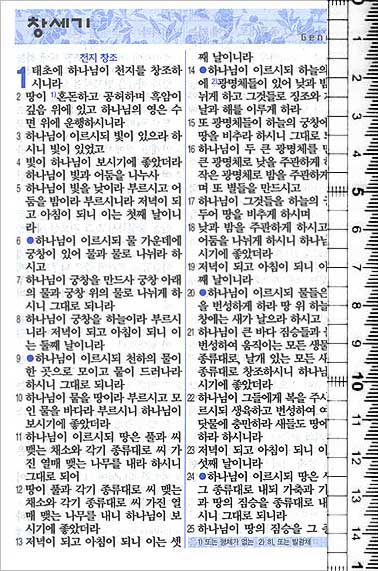 창세기
Gen
천지 창조
1 태초에 하나님이 천지를 창조하
시니라
2 땅이 1)혼돈하고 공허하며 흑암이
깊음 위에 있고 하나님의 영은 수
면 위에 운행하시니라
3 하나님이 이르시되 빛이 있으라 하
시니 빛이 있었고
4 빛이 하나님이 보시기에 좋았더라
하나님이 빛과 어둠을 나누사
5 하나님이 빛을 낮이라 부르시고 어
둠을 밤이라 부르시니라 저녁이 되
고 아침이 되니 이는 첫째 날이니
라
6 ●하나님이 이르시되 물 가운데에
궁창이 있어 물과 물로 나뉘라 하
시고
7 하나님이 궁창을 만드사 궁창 아래
의 물과 궁창 위의 물로 나뉘게 하
시니 그대로 되니라
8 하나님이 궁창을 하늘이라 부르시
니라 저녁이 되고 아침이 되니 이
는 둘째 날이니라
9 ●하나님이 이르시되 천하의 물이
한 곳으로 모이고 뭍이 드러나라
하시니 그대로 되니라
10 하나님이 뭍을 땅이라 부르시고 모
인 물을 바다라 부르시니 하나님이
보시기에 좋았더라
11 하나님이 이르시되 땅은 풀과 씨
맺는 채소와 각기 종류대로 씨 가
진 열매 맺는 나무를 내라 하시니
그대로 되어
12 땅이 풀과 각기 종류대로 씨 맺는
채소와 각기 종류대로 씨 가진 열
매 맺는 나무를 내니 하나님이 보
시기에 좋았더라
13 저녁이 되고 아침이 되니 이는 셋
째 날이니라
14 ●하나님이 이르시되 하늘의
에 2)광명체들이 있어 낮과 밤
뉘게 하고 그것들로 징조와
날과 해를 이루게 하라
15 또 광명체들이 하늘의 궁창에
땅을 비추라 하시니 그대로
16 하나님이 두 큰 광명체를 만
큰 광명체로 낮을 주관하게
작은 광명체로 밤을 주관하게
며 또 별들을 만드시고
17 하나님이 그것들을 하늘의
두어 땅을 비추게 하시며
18 낮과 밤을 주관하게 하시고
어둠을 나뉘게 하시니 하나님
시기에 좋았더라
19 저녁이 되고 아침이 되니 이
째 날이니라
20 ●하나님이 이르시되 물들은
을 번성하게 하라 땅 위 하늘
창에는 새가 날으라 하시고
21 하나님이 큰 바다 짐승들과
번성하여 움직이는 모든 생물
종류대로, 날개 있는 모든 새
종류대로 창조하시니 하나님
시기에 좋았더라
22 하나님이 그들에게 복을 주시
르시되 생육하고 번성하여 여
닷물에 충만하라 새들도 땅에
하라 하시니라
23 저녁이 되고 아침이 되니 이
섯째 날이니라
24 ●하나님이 이르시되 땅은
그 종류대로 내되 가축과 기
과 땅의 짐승을 종류대로 내
시니 그대로 되니라
25 하나님이 땅의 짐승을 그
1) 또는 형체가 없는 2) 히, 또는 발광체
1
2
3
4
5
6
7
8
9
10
11
12
13
14